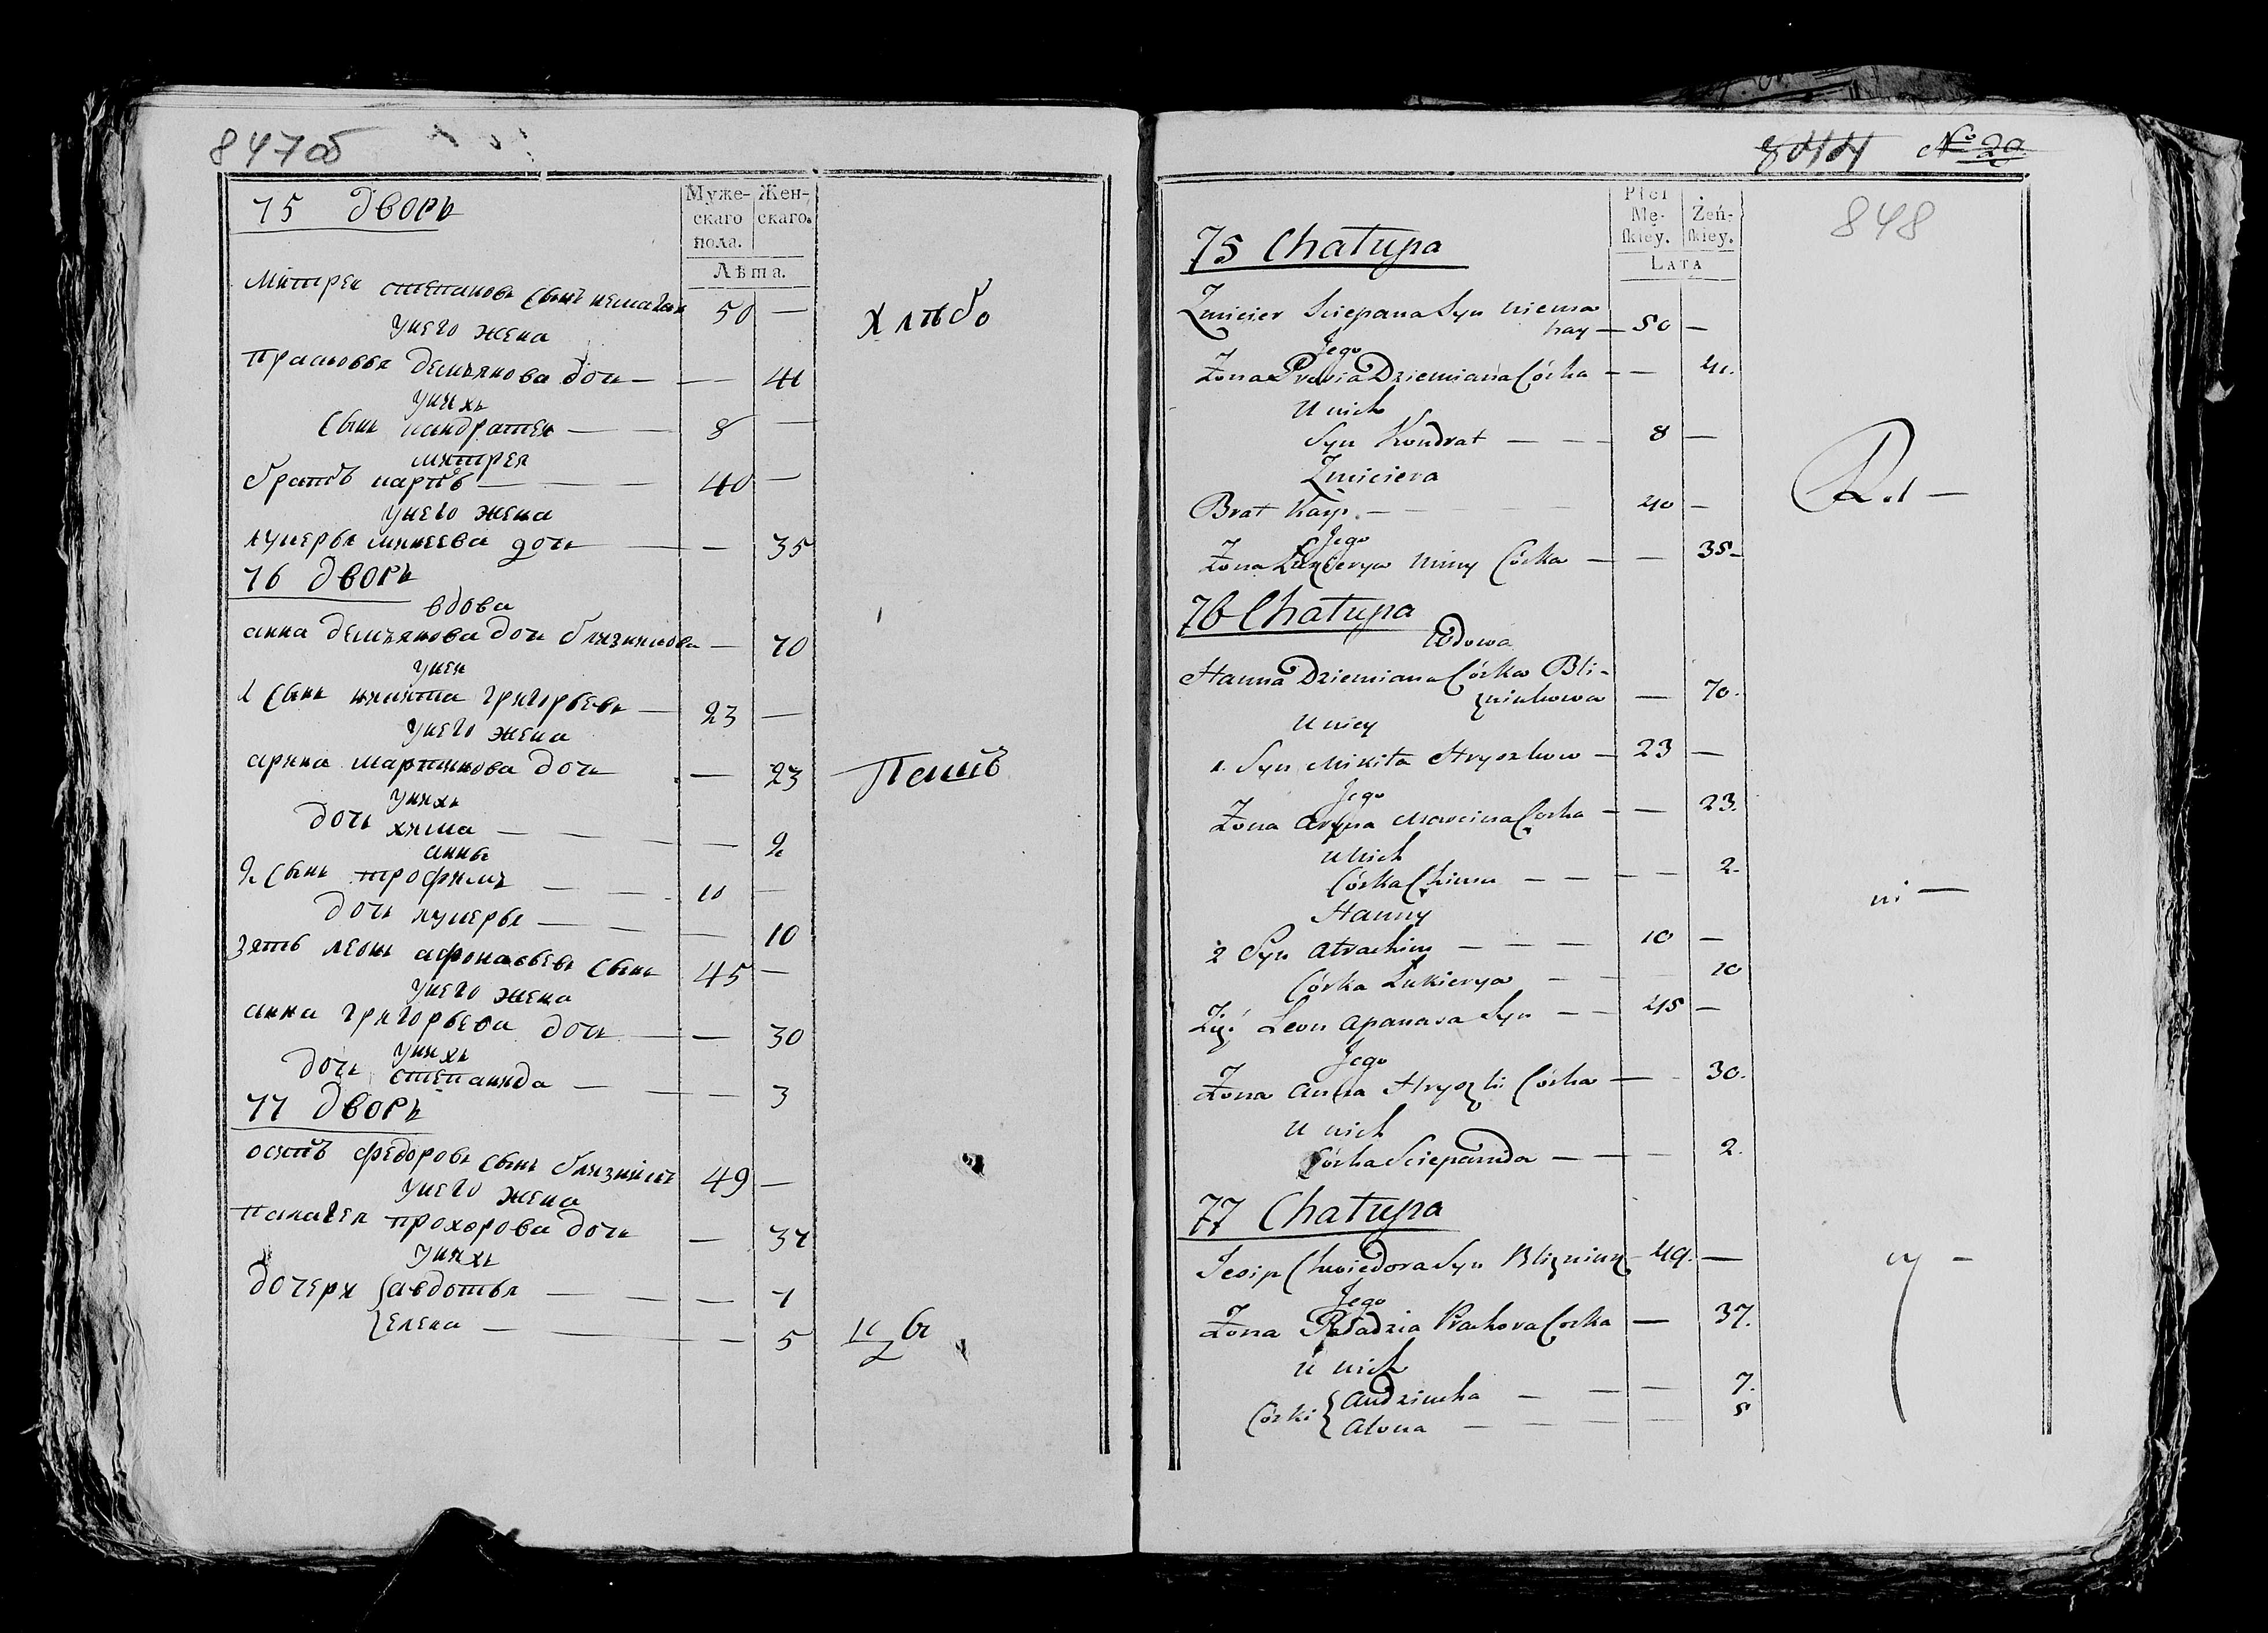 847об
75 дворъ
Муже-
скаго
пола.
Жен-
скаго.
Лѣта.
Митреи степановъ сынъ 50 —
унего жена
Прасковья демъянова дочь — — 41
унихъ
сынъ кандратеи — — 8 —
митрея
братъ карпъ — — — 40 —
унего жена
лукерья дочь — — 35
хлѣбо
76 дворъ
вдова
анна демъянова дочь близникова — 70
унеи
1 сынъ никита григорьевъ — 23 —
унего жена
арина мартинова дочь — 23
унихъ
дочь хима — — — 2
анны
2 сынъ трофимъ — — 10 —
дочь лукерья — — — 10
зять леонъ афонасьевъ сынъ 45 —
унего жена
анна григорьева дочь — — 30
унихъ
дочь степанида — — — 3
77 дворъ
осипъ федоровъ сынъ близникъ 49 —
унего жена
палагея прохорова дочь — 37
унихъ
дочери { авдотья — — — 7
{ елена — — — 5
844 № 29
848
Płci
Mę-
ſkiey.
Żeń-
ſkiey.
LATA
75 Chatupa
Zmicier Sciepana Syn niema
hay — 50 —
Jego
Żona Dziemiana Córka — — 41.
U nich
Syn Kondrat — — — 8 —
Zmiciera
Brat Karp. — — — 40 —
Jego
Żona Miny Córka — — 35 —
76 Chatupa
Wdowa
Hanna Dziemiana Córka Bli-
zniukowa — 70.
U niey
1. Syn Mikita Hryszkow — 23 —
Jego
Żona Aryna Marcina Corka — — 23.
U nich
Córka Chima — — — — 2.
Hanny
2 Syn Atrachim — — — 10 —
Córka Lukierya — — — 10
Zięć Leon Apanasa Syn — — 45 —
Jego
Żona Anna Hryszki Córka — — 30.
U nich
Córka Sciepanida — — — 2.
77 Chatupa
Jesip Chwiedora Syn Blizniuk — 49. —
Jego
Żona Paładzia Prachora Corka — 37.
U nich
Córki { Audziucha — — — 7.
{ Alona — — — — 5